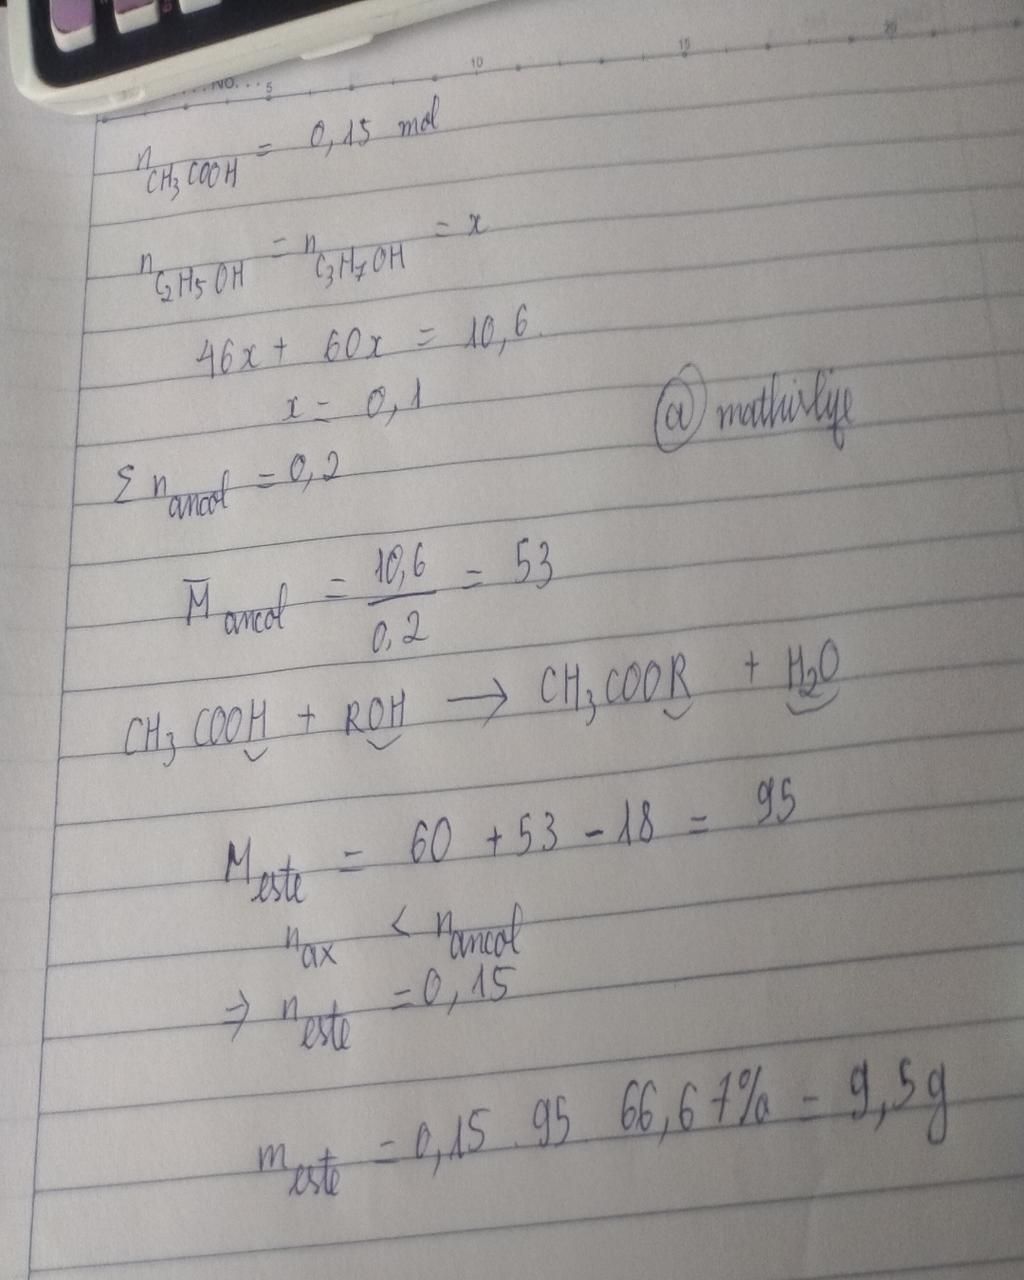 NO. 5 10 15 20
n CH₃COOH = 0,15 mol
n C₂H₅OH = n C₃H₇OH = x
46x + 60x = 10,6
x = 0,1
@mathislife
Σ n ancol = 0,2
M̄ ancol = 10,6 / 0,2 = 53
CH₃COOH + ROH → CH₃COOR + H₂O
M este = 60 + 53 - 18 = 95
n ax < n ancol
⇒ n este = 0,15
m este = 0,15 . 95 . 66,67% = 9,5g